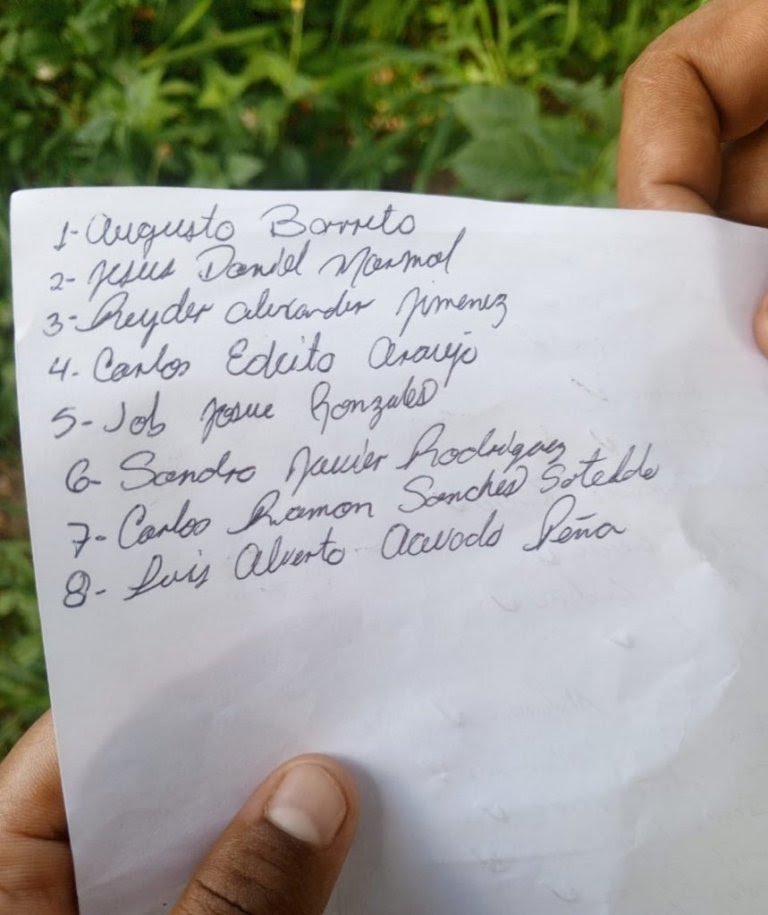 1- Augusto Barreto
2- Jesus Daniel Marmol
3- Reyder alexander Jimenez
4- Carlos Edcito Araujo
5- Job Josue Gonzales
6- Sandro Javier Rodriguez
7- Carlos Ramon Sanches Soteldo
8- Luis Alverto Acevodo Peña